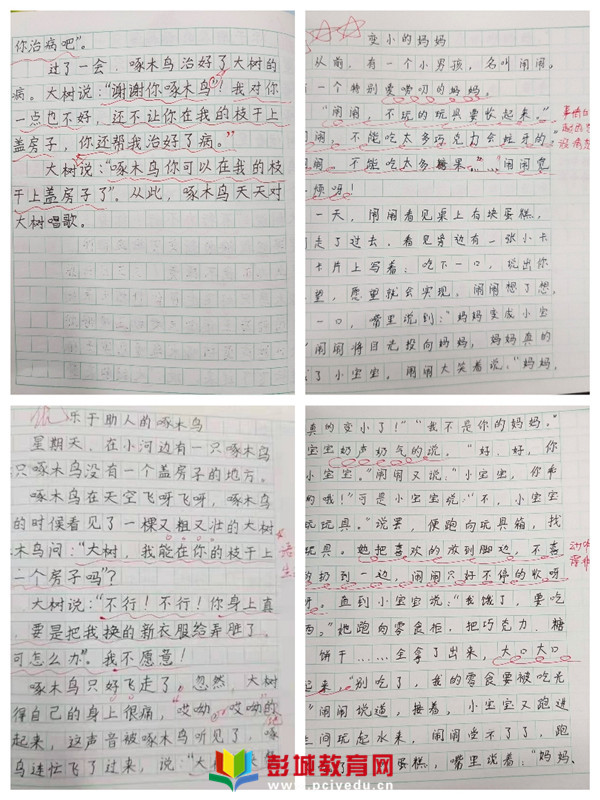 你治病吧”。
过了一会,啄木鸟治好了大树的
病。大树说:“谢谢你啄木鸟!我对你
一点也不好,还不让你在我的枝干上
盖房子,你还帮我治好了病。”
大树说:“啄木鸟你可以在我的枝
干上盖房子了”。从此,啄木鸟天天对
大树唱歌。
变小的妈妈
从前,有一个小男孩,名叫闹闹,
一个特别爱唠叨的妈妈。
“闹闹,不玩的玩具要收起来。”
闹,不能吃太多巧克力会蛀牙的
闹,不能吃太多糖果。”…“闹闹觉
烦呀!
一天,闹闹看见桌上有块蛋糕,
走了过去,看见旁边有一张小卡
卡片上写着:吃下一口,说出你
望,愿望就会实现,闹闹想了想,
一口,嘴里说到:“妈妈变成小宝
”闹闹将目光投向妈妈,妈妈真的
了小宝宝,闹闹大笑着说:“妈妈,
乐于助人的啄木鸟
星期天,在小河边有一只啄木鸟
只啄木鸟没有一个盖房子的地方。
啄木鸟在天空飞呀飞呀,啄木鸟
的时候看见了一棵又粗又壮的大树
木鸟问:“大树,我能在你的枝干上
一个房子吗”?
大树说:“不行!不行!你身上真
要是把我换的新衣服给弄脏了,
可怎么办”。我不愿意!
啄木鸟只好飞走了。忽然,大树
得自己的身上很痛,“哎呦,哎呦的
起来,这声音被啄木鸟听见了,啄
鸟连忙飞了过来,说:“大
真的变小了!”“我不是你的妈妈。”
宝宝奶声奶气的说。“好,好,你
小宝宝。”闹闹又说:“小宝宝,你
的哦!”可是小宝宝说:“不,小宝宝
玩玩具。”说罢,便跑向玩具箱,找
玩具。她把喜欢的放到脚边,不喜
扔到一边,闹闹只好不停的收呀
呀。直到小宝宝说:“我饿了,要吃
西。”她跑向零食柜,把巧克力、糖
饼干……全拿了出来,大口大口
起来,“别吃了,我的零食要被吃光
”闹闹说道,接着,小宝宝又跑进
间玩起水来,闹闹受不了了,跑
了 蛋糕,嘴里说着:“妈妈、
彭城教育网
www.pcjyedu.cn